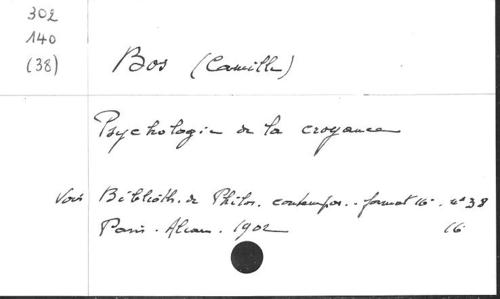 302
140
(38)
Bos (Camille)
Psychologie de la croyance
Voir Biblioth. de Philos. contempor. format 16. n° 38
Paris. Alcan. 1902 16